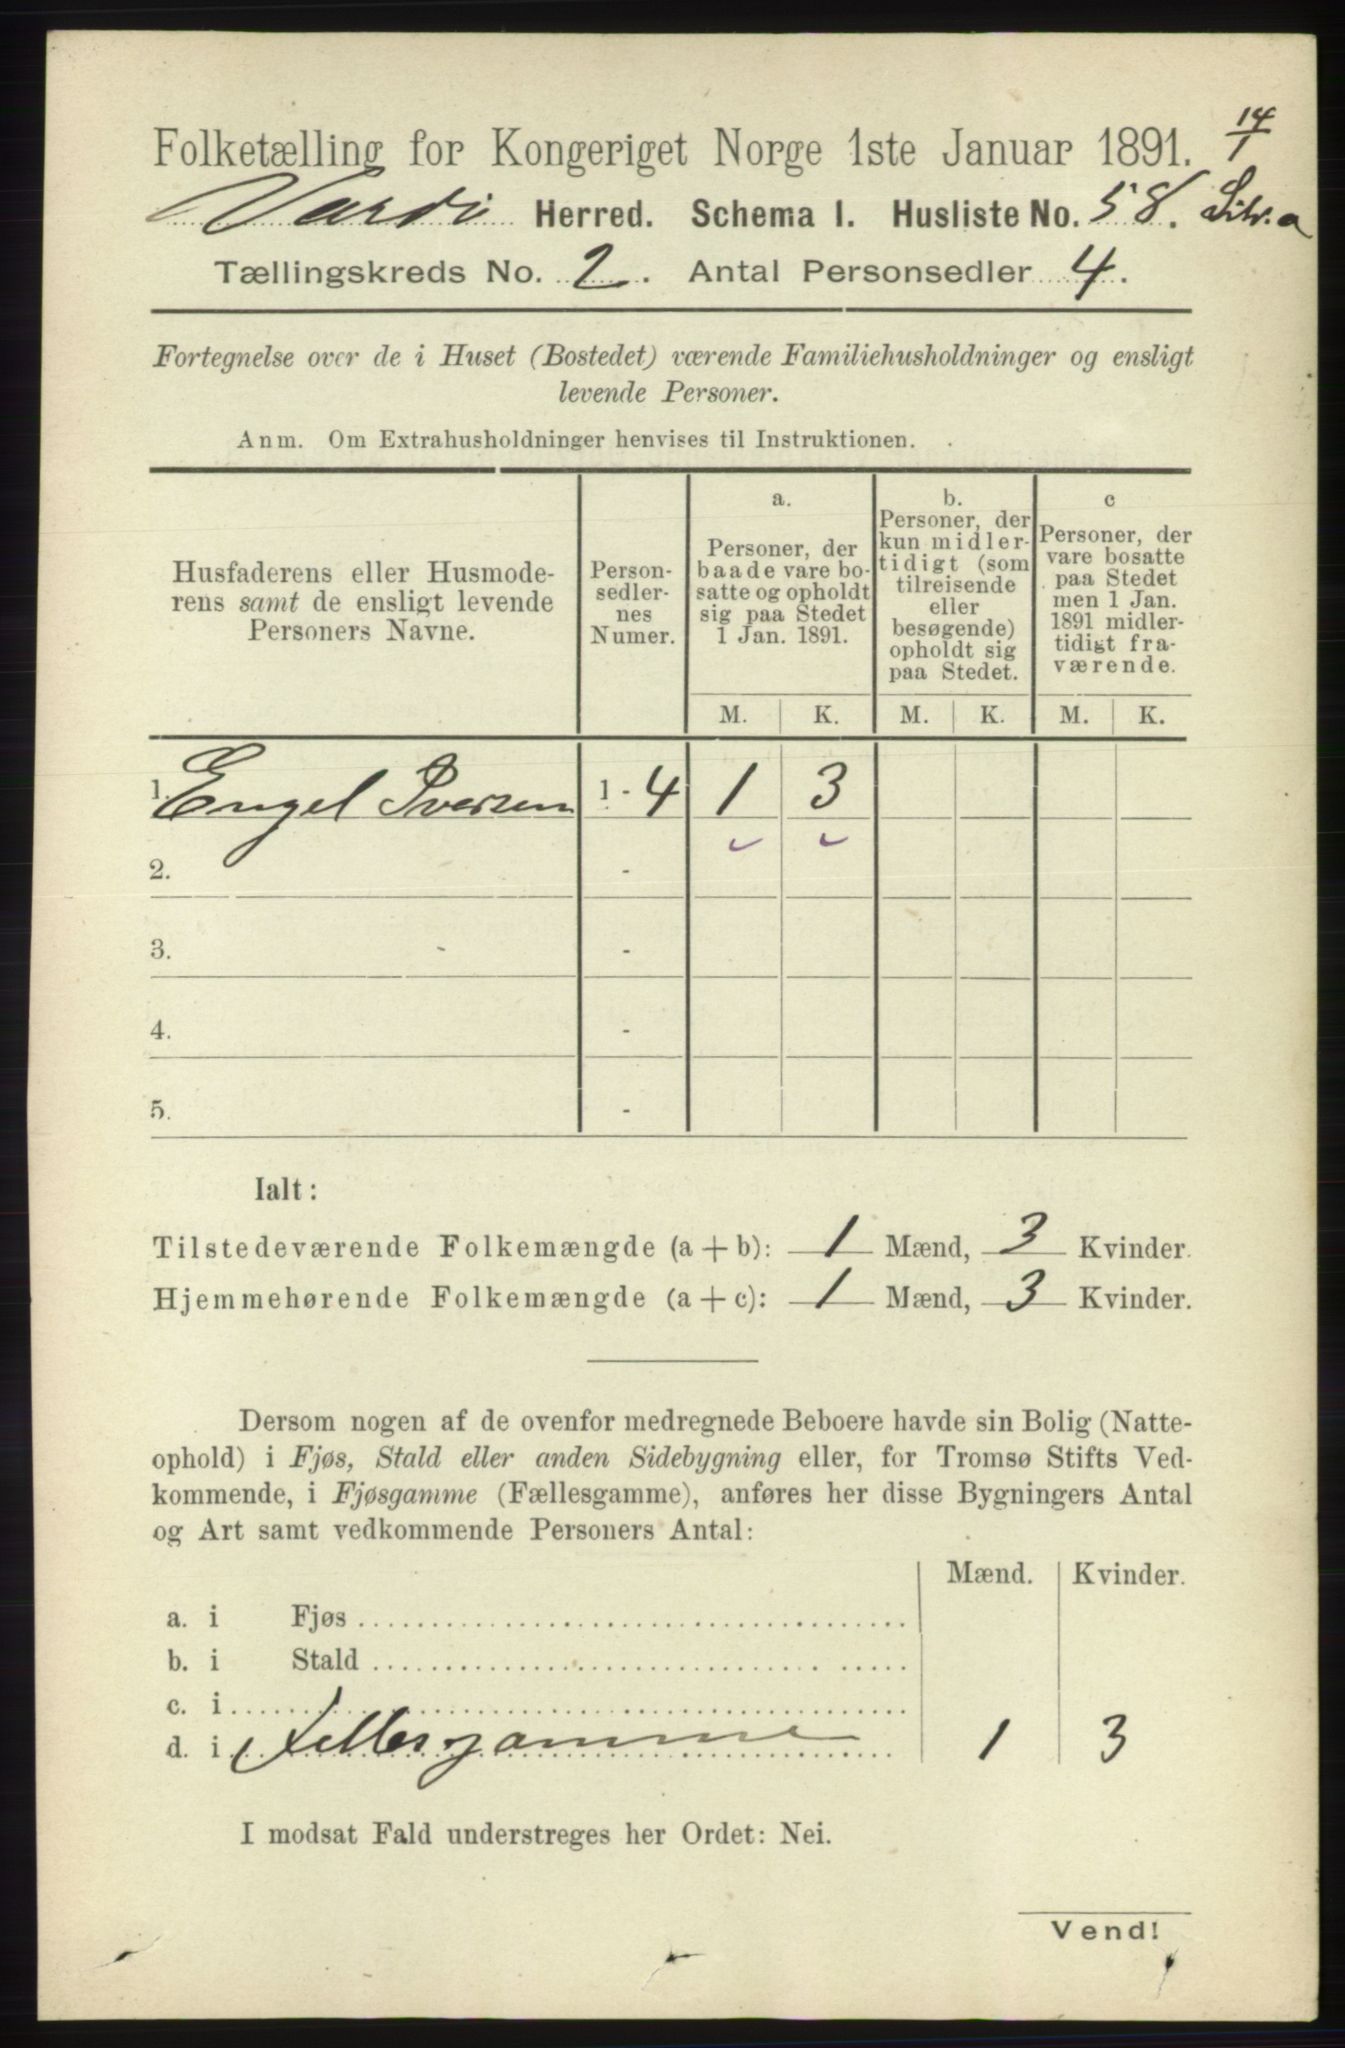 14/1
Folketælling for Kongeriget Norge 1ste Januar 1891.
Vardø Herred. Schema I. Husliste No. 58. Litr. a
Tællingskreds No. 2. Antal Personsedler 4.
Fortegnelse over de i Huset (Bostedet) værende Familiehusholdninger og ensligt
levende Personer.
Anm. Om Extrahusholdninger henvises til Instruktionen.
Husfaderens eller Husmode-
rens samt de ensligt levende
Personers Navne.
Person-
sedler-
nes
Numer.
a.
Personer, der
baade vare bo-
satte og opholdt
sig paa Stedet
1 Jan. 1891.
b.
Personer, der
kun midler-
tidigt (som
tilreisende
eller
besøgende)
opholdt sig
paa Stedet.
c
Personer, der
vare bosatte
paa Stedet
men 1 Jan.
1891 midler-
tidigt fra-
værende.
M. K. M. K. M. K.
1. Engel Iversen 1 - 4 1 3
2. -
3. -
4. -
5. -
Ialt:
Tilstedeværende Folkemængde (a + b): 1 Mænd, 3 Kvinder.
Hjemmehørende Folkemængde (a + c): 1 Mænd, 3 Kvinder.
Dersom nogen af de ovenfor medregnede Beboere havde sin Bolig (Natte-
ophold) i Fjøs, Stald eller anden Sidebygning eller, for Tromsø Stifts Ved-
kommende, i Fjøsgamme (Fællesgamme), anføres her disse Bygningers Antal
og Art samt vedkommende Personers Antal:
Mænd. Kvinder.
a. i Fjøs
b. i Stald
c. i
d. i Fellesgamme 1 3
I modsat Fald understreges her Ordet: Nei.
Vend!